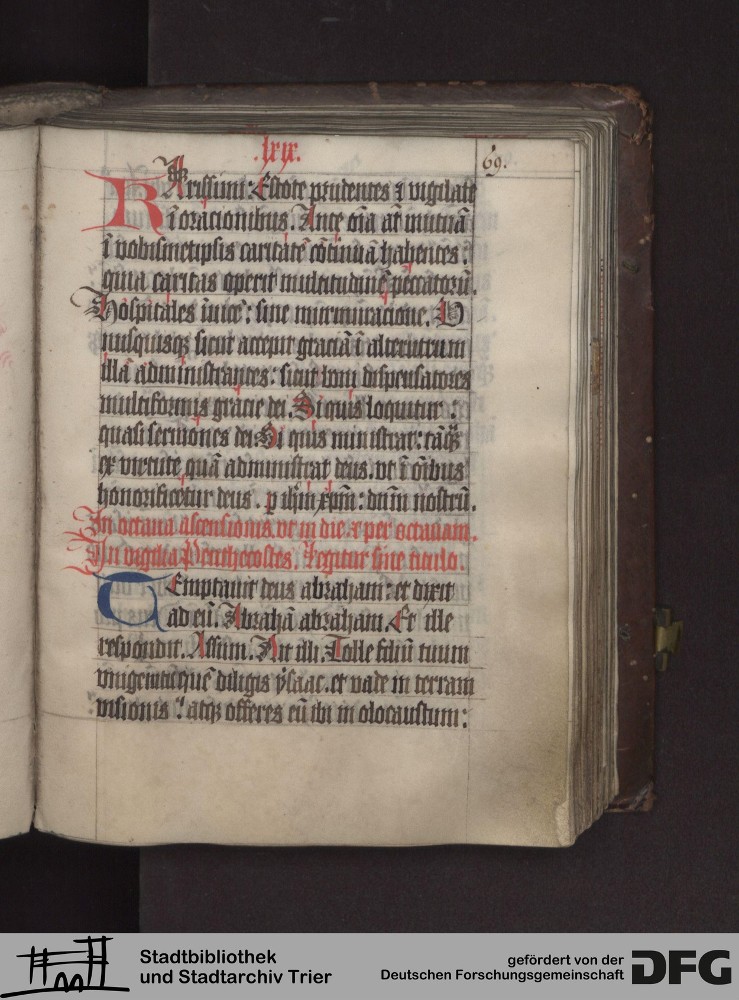 .lxix.
69.
KArissimi: Estote prudentes ⁊ vigilate
ī oracionibus. Ante oīa aūt mutuā
ī vobismetipsis caritatē cōtinuā habentes:
quia caritas operit multitudinē peccatorū.
Hospitales īuicē: sine murmuracione. V
nusquisqȝ sicut accepit graciā ī alterutrum
illā administrantes: sicut boni dispensatores
multiformis gracie dei. Si quis loquitur:
quasi sermones dei. Si quis ministrat: tāqȝ
ex virtute quā administrat deus. vt ī oībus
honorificetur deus. p ihm̄ xpm̄: dnm̄ nostrū.
In octaua ascensionis. vt in die. ⁊ per octauam.
In vigilia Penthecostes. Legitur sine titulo.
TEmptauit deus abraham: et dixit
ad eū. Abrahā abraham. Et ille
respondit. Assum. Ait illi. Tolle filiū tuum
vnigenitū quē diligis ysaac. et vade in terram
visionis: atqȝ offeres eū ibi in olocaustum:
Stadtbibliothek
und Stadtarchiv Trier
gefördert von der
Deutschen Forschungsgemeinschaft
DFG